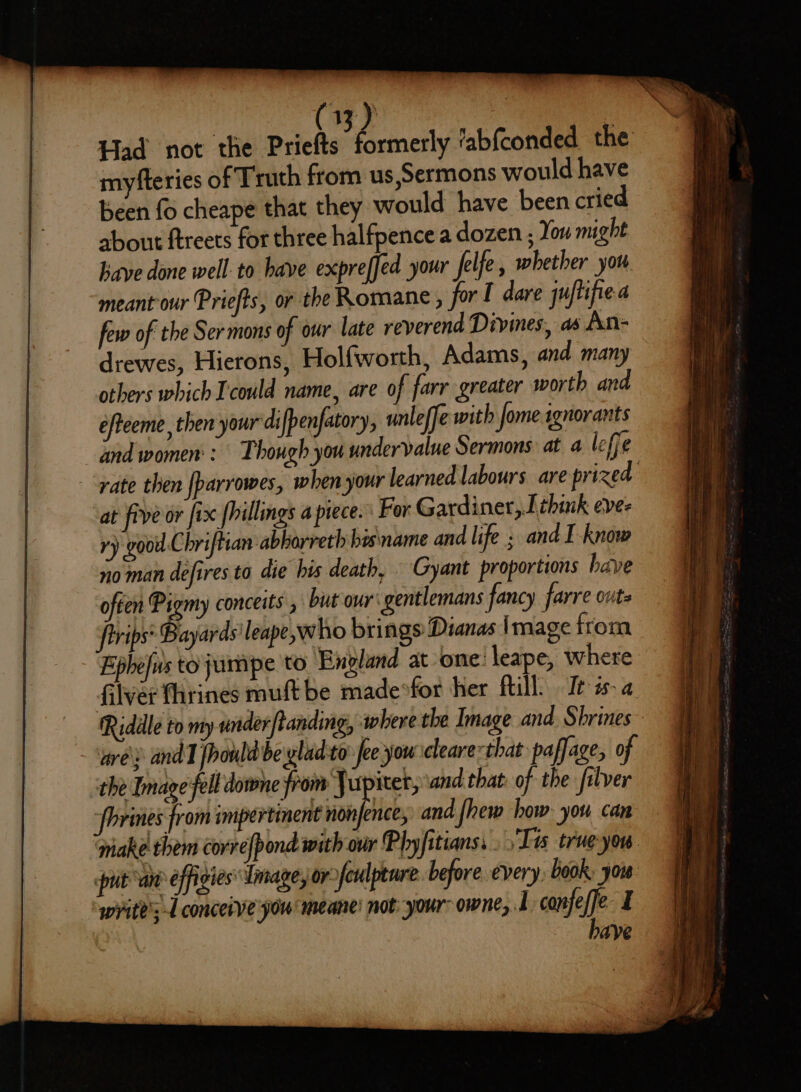 (13)
Had not the Priеſts formerly abſconded the
myſteries of Truth from us, Sermons would have
been ſo cheape that they would have been cried
about ſtreets for three halfpence a dozen ; You might
have done well to have expreſſed your ſelfe, whether you
meant our Prieſts, or the Romane, for I dare juſtifie a
few of the Sermons of our late reverend Divines, as An-
drewes, Hierons, Holſworth, Adams, and many
others which I could name, are of farr greater worth and
eſteeme, then your diſpenſatory, unleſſe with ſome ignorants
and women : Though you undervalue Sermons at a leſſe
rate then ſparrowes, when your learned labours are prized
at five or ſix ſhillings a piece. For Gardiner, I think eve-
ry good Chriſtian abhorreth his name and life ; and I know
no man deſires to die his death, Gyant proportions have
often Pigmy conceits, but our gentlemans fancy farre out-
ſtrips Bayards leape, who brings Dianas Image from
Epheſus to jumpe to England at one leape, where
ſilver ſhrines muſt be made for her ſtill. It is a
Riddle to my underſtanding, where the Image and Shrines
are ; and I ſhould be glad to ſee you cleare that paſſage, of
the Image fell downe from Jupiter, and that of the ſilver
ſhrines from impertinent nonſence, and ſhew how you can
make them correſpond with our Phyſitians. Tis true you
put an effigies Image, or ſculpture before every book you
write ; I conceive you meane not your owne, I confeſſe I
have